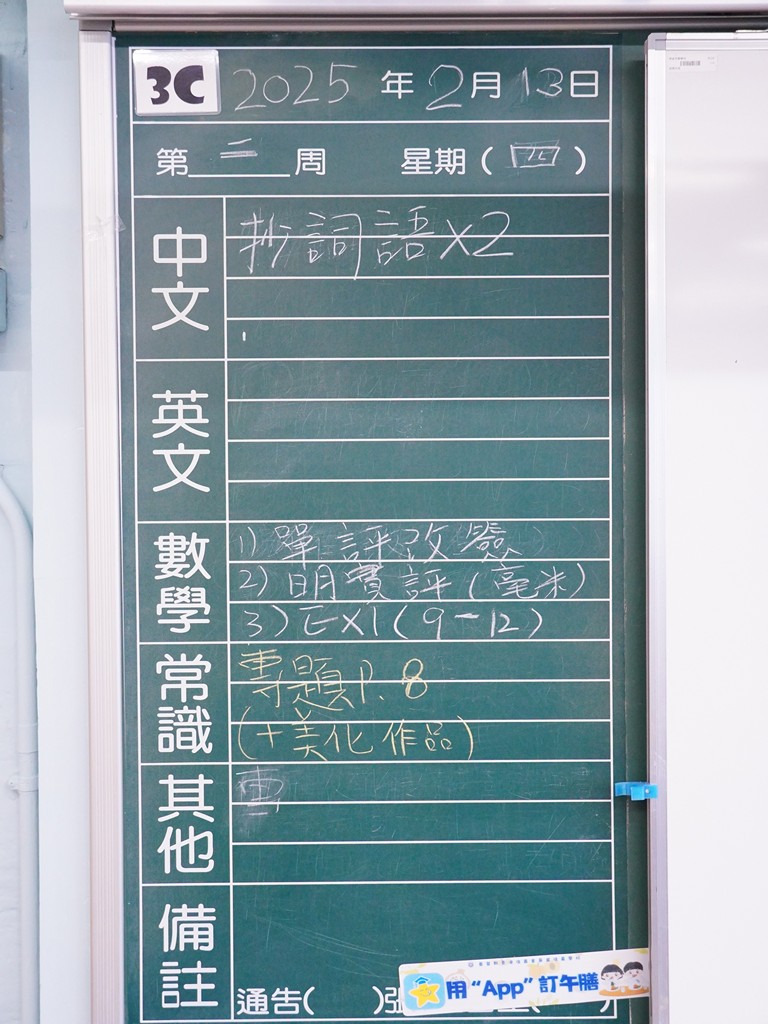 3C 2025 年 2 月 13 日
第 二 周 星期 ( 四 )
中文
抄詞語 x2
英文
數學
1) 單評改簽
2) 明實評 (毫米)
3) Ex1 (9-12)
常識
專題 P. 8
(+美化作品)
其他
備註
通告( )張
用 “App” 訂午膳